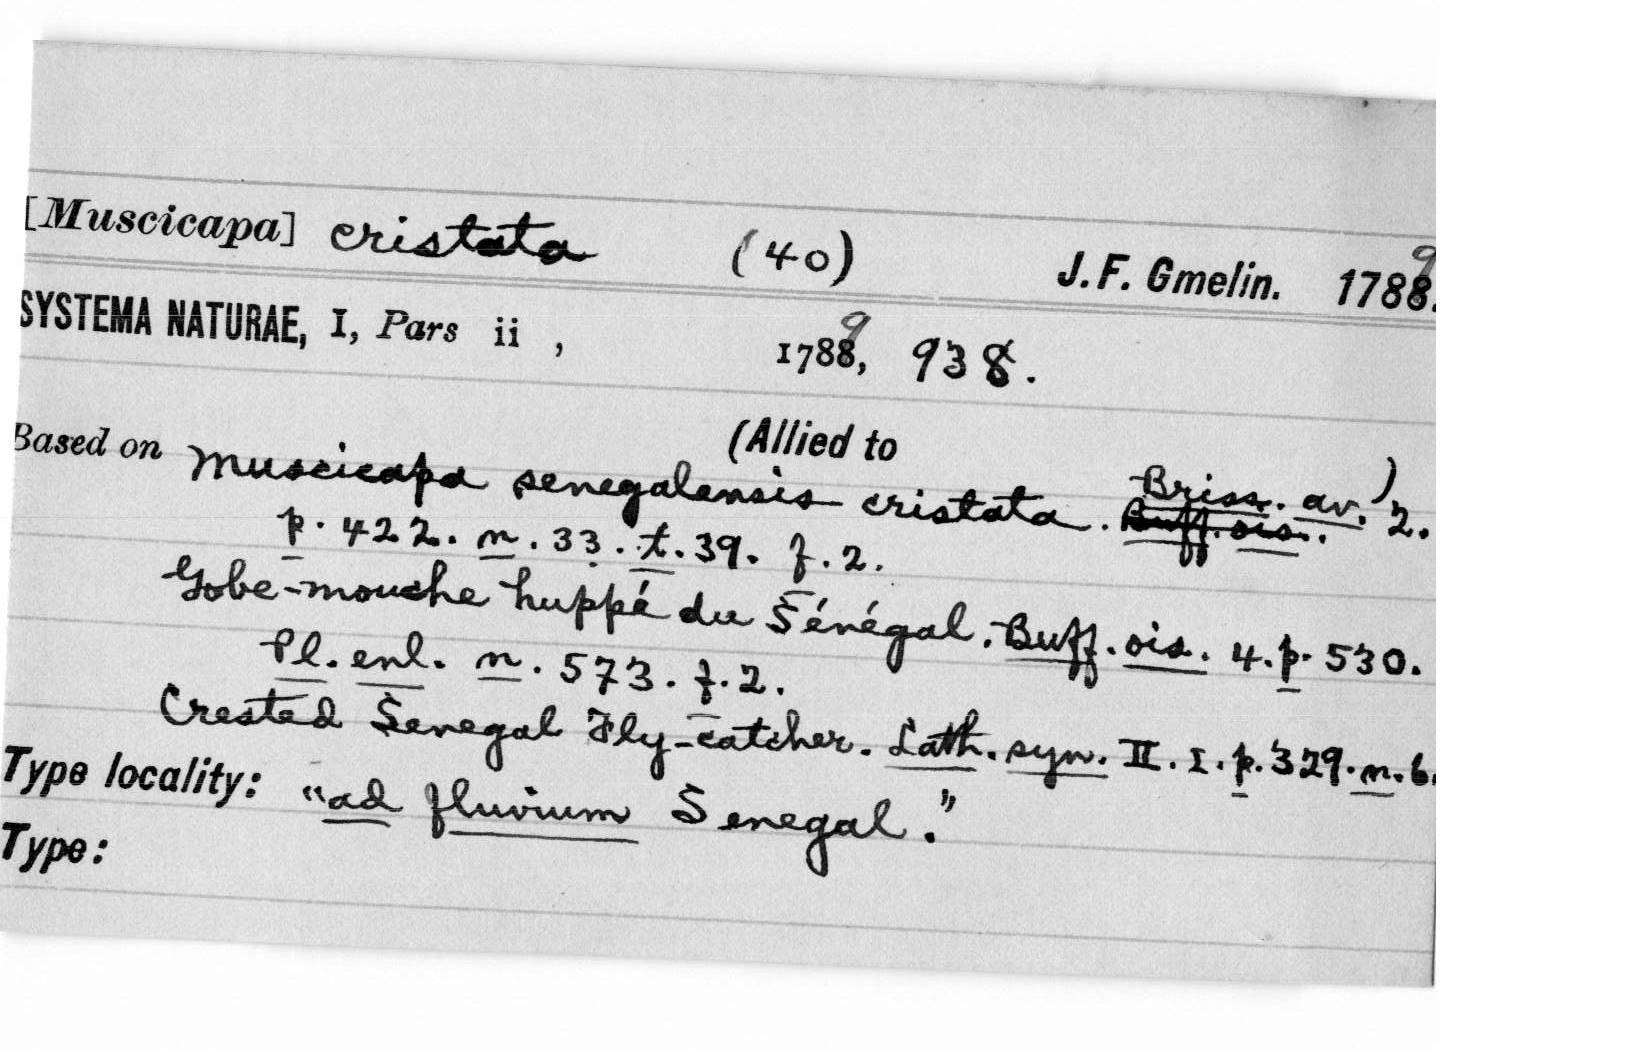 [Muscicapa] cristata (40) J. F. Gmelin. 1788. 9
SYSTEMA NATURAE, I, Pars ii , 1788, 9 938.
Based on (Allied to )
Muscicapa senegalensis cristata. Buff. ois. Briss. av. 2.
p. 422. n. 33. t. 39. f. 2.
Gobe-mouche huppé du Sénégal. Buff. ois. 4. p. 530.
Pl. enl. n. 573. f. 2.
Crested Senegal Fly-catcher. Lath. syn. II. I. p. 329. n. 6.
Type locality: "ad fluvium Senegal."
Type: